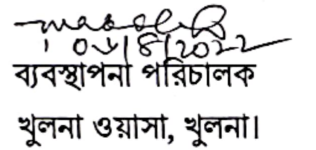 ০৮/8/2022
ব্যবস্থাপনা পরিচালক
খুলনা ওয়াসা, খুলনা।